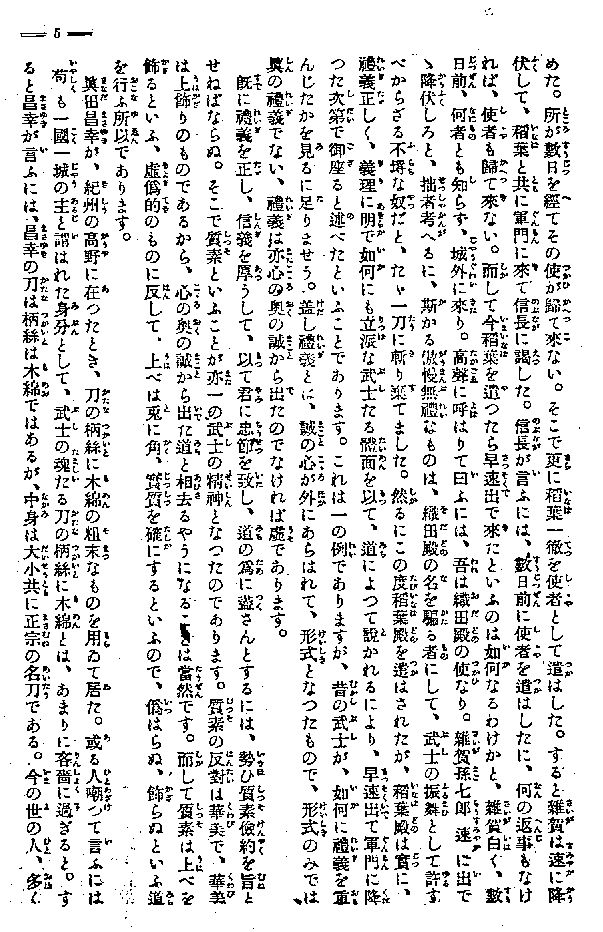 — 5 —
めた。所が數日を經てその使が歸て來ない。そこで更に稻葉一徹を使者として遣はした。すると雜賀は速に降
伏して、稻葉と共に軍門に來て信長に謁した。信長が言ふには、數日前に使者を遣はしたに、何の返事もなけ
れば、使者も歸て來ない。而して今稻葉を遣つたら早速出で來たといふのは如何なるわけかと、雜賀曰く、數
日前、何者とも知らず、城外に來り。高聲に呼はりて曰ふには、吾は織田殿の使なり。雜賀孫七郎 速に出で
ゝ降伏しろと、拙者考へるに、斯かる傲慢無禮なものは、織田殿の名を騙る者にして、武士の振舞として許す
べからざる不埓な奴だと、たゞ一刀に斬り棄てました。然るにこの度稻葉殿を遣はされたが、稻葉殿は實に、
禮義正しく、義理に明で如何にも立派な武士たる體面を以て、道によつて說かれるにより、早速出て軍門に降
つた次第で御座ると述べたといふことであります。これは一の例でありますが、昔の武士が、如何に禮義を重
んじたかを見るに足りませう。蓋し禮義とは、誠の心が外にあらはれて、形式となつたもので、形式のみでは
眞の禮義でない、禮義は亦心の奧の誠から出たのでなければ虛であります。
既に禮義を正し、信義を厚うして、以て君に忠節を致し、道の爲に盡さんとするには、勢ひ質素儉約を旨と
せねばならぬ。そこで質素といふことが亦一の武士の精神となつたのであります。質素の反對は華美で、華美
は上飾りのものであるから、心の奧の誠から出た道と相去るやうになることは當然です。而して質素は上べを
飾るといふ、虛僞的のものに反して、上べは兎に角、實質を確にするといふので、僞はらぬ、飾らぬといふ道
を行ふ所以であります。
眞田昌幸が、紀州の高野に在つたとき、刀の柄絲に木綿の粗末なものを用ゐて居た。或る人嘲つて言ふには
苟も一國一城の主と謂はれた身分として、武士の魂たる刀の柄絲に木綿とは、あまりに吝嗇に過ぎると。す
ると昌幸が言ふには、昌幸の刀は柄絲は木綿ではあるが、中身は大小共に正宗の名刀である。今の世の人、多く